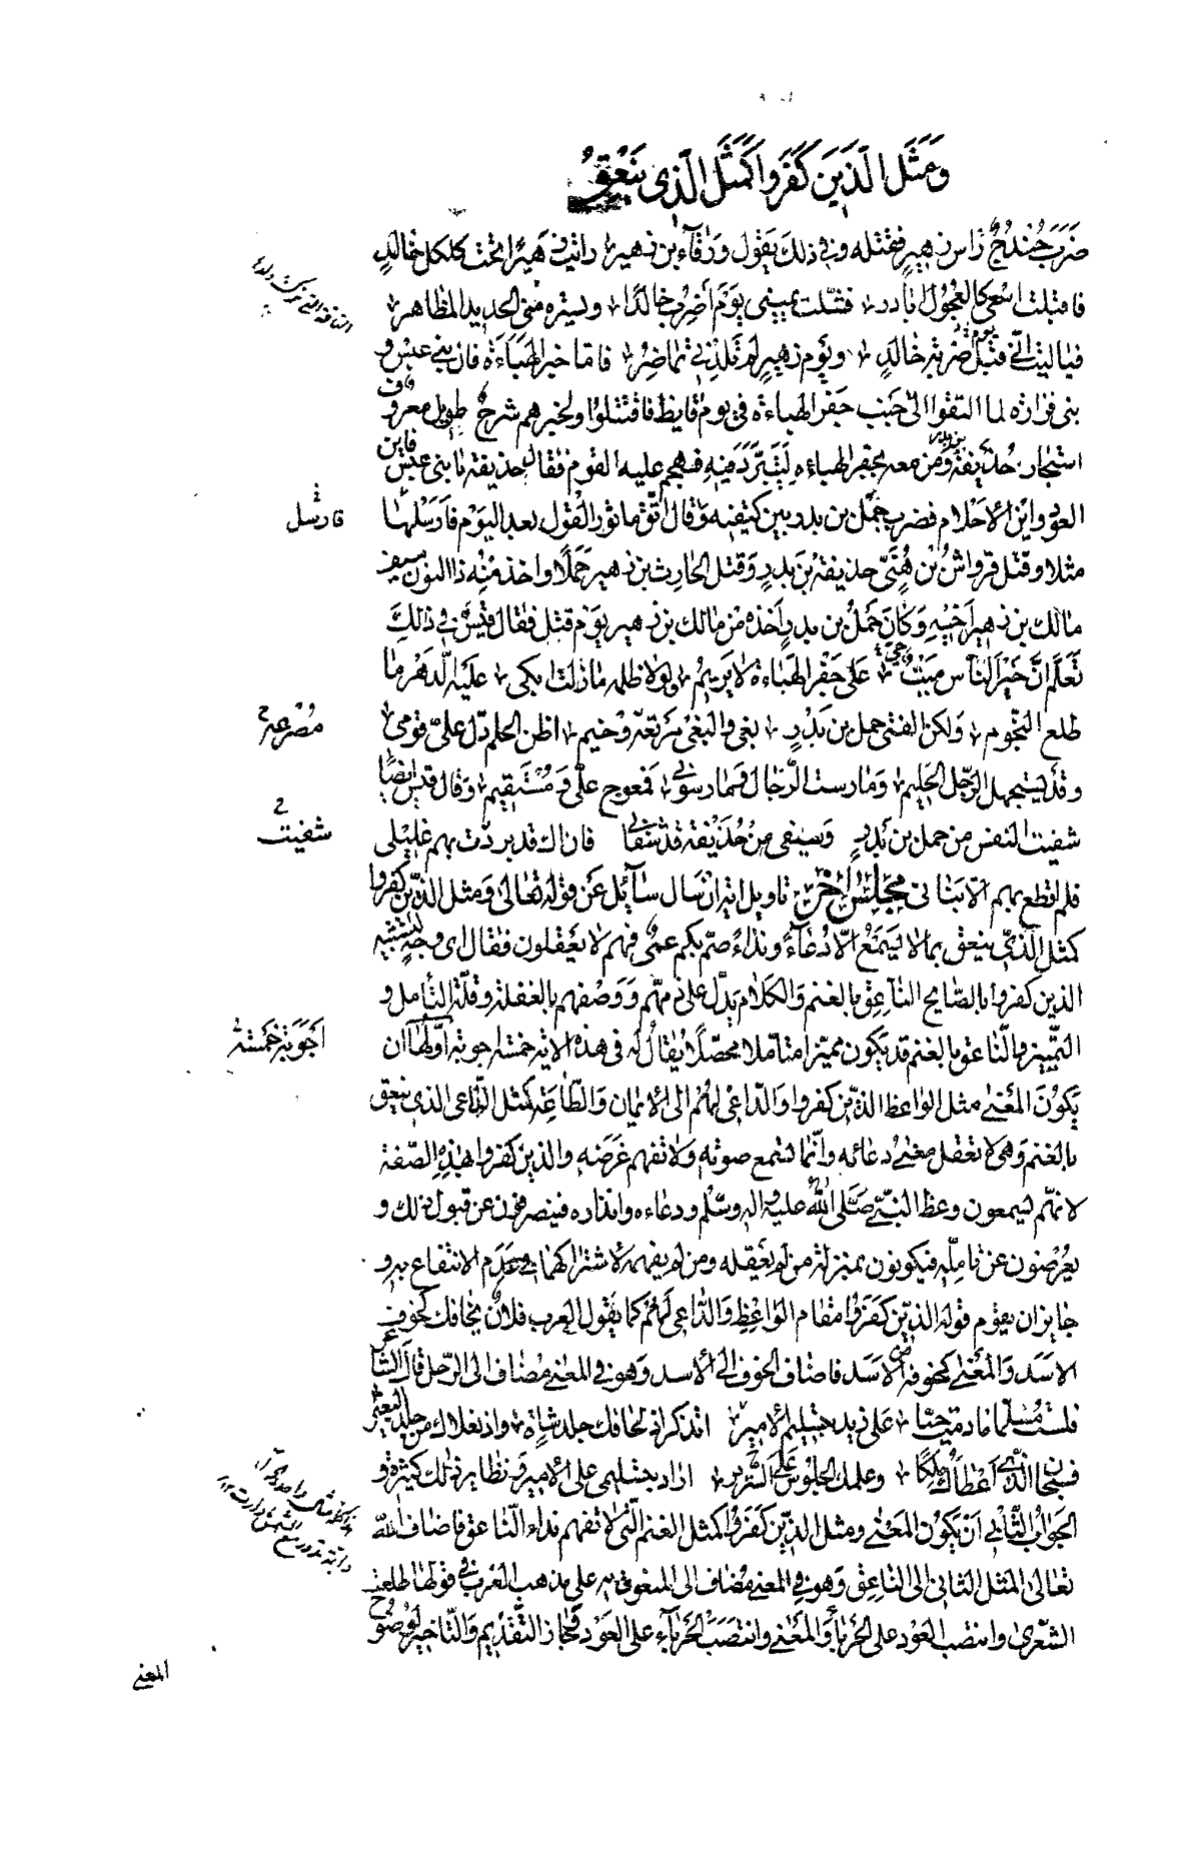 وَمَثَلُ الَّذِينَ كَفَرُوا كَمَثَلِ الَّذِي يَنْعِقُ
ضَرَبَ جُندُحٌ رأس زهير فقتله وفي ذلك يقول ورقاء بن زهير رأيت زهيرا تحت كلكل خالد
فاقبلت اسعى كالعجول ابادر فشلت يميني يوم أضرب خالدا ويستره مني الحديد المظاهر
فيا ليت أني قبل ضربة خالد ويوم زهير لم تلدني تماضر فاما خبر الهباءة فان بني عبس و
بني فزارة لما التقوا الى جنب جفر الهباءة في يوم قايظ فاقتتلوا ولخبرهم شرح طويل معروف
استجار حذيفة ومن معه بجفر الهباءه ليتبرد فيه فهجم عليه القوم فقال حذيفة يا بني عبس فاين
العود واين الاحلام فضرب حمل بن بدر بين كتفيه وقال اتق ماثور القول بعد اليوم فارسلها
مثلا وقتل قرواش بن هُنَيّ حذيفة بن بدر وقتل الحارث بن زهير حملا واخذ منه ذا النون سيف
مالك بن زهير أخيه وكان حمل بن بدر أخذه من مالك بن زهير يوم قتل فقال قيس في ذلك
تعلم ان خير الناس ميت على جفر الهباءة لا يريم ولولا ظلمه ما زلت ابكى عليه الدهر ما
طلع النجوم ولكن الفتى حمل بن بدر بغى والبغى مرتعه وخيم اظن الحلم دل علي قومي
وقد يستجهل الرجل الحليم ومارست الرجال ومارسوني فمعوج علي ومستقيم وقال قيس ايضا
شفيت النفس من حمل بن بدر وسيفي من حذيفة قد شفاني فان اك قد بردت بهم غليلي
فلم اقطع بهم الا بناني مجلس آخر تاويل اية ان سال سائل عن قوله تعالى ومثل الذين كفروا
كمثل الذي ينعق بما لا يسمع الا دعاء ونداء صم بكم عمي فهم لا يعقلون فقال اي وجه لتشبيه
الذين كفروا بالصايح الناعق بالغنم والكلام يدل على ذمهم ووصفهم بالغفلة وقلة التأمل و
التمييز والناعق بالغنم قد يكون مميزا متاملا محصلا يقال له في هذه الاية خمسة اجوبة أولها ان
يكون المعنى مثل الواعظ الذين كفروا والداعي لهم الى الايمان والطاعة كمثل الراعي الذي ينعق
بالغنم وهي لا تعقل معنى دعائه وانما تسمع صوته ولا تفهم غرضه والذين كفروا بهذه الصفة
لانهم يسمعون وعظ النبي صلى الله عليه وآله وسلم ودعاءه وانذاره فينصرفون عن قبول ذلك و
يعرضون عن تامله فيكونون بمنزلة من لم يعقله ومن لم يفهمه لاشتراكهما في عدم الانتفاع به و
جايز ان يقوم قوله الذين كفروا مقام الواعظ والداعي لهم كما يقول العرب فلان يخافك خوف
الاسد والمعنى كخوفه الاسد فاضاف الخوف الى الأسد وهو في المعنى مضاف الى الرجل قال الشاعر
فلست مسلما ما دمت حيا على زيد بتسليم الامير اتذكر اذ لحافك جلد شاة واذ نعلاك من جلد البعير
فسبحان الذي أعطاك ملكا وعلمك الجلوس على السرير اراد بتسليمي على الامير ونظاير ذلك كثيرة و
الجواب الثاني أن يكون المعنى ومثل الذين كفروا كمثل الغنم التي لا تفهم نداء الناعق فاضاف الله
تعالى المثل الثاني الى الناعق وهو في المعنى مضاف الى المنعوق به على مذهب العرب في قولها طلعت
الشعرى وانتصب العود على الحرباء والمعنى وانتصب الحرباء على العود فجاز التقديم والتاخير لوضوح
فارسل
مصرعه
شفيت
أجوبة خمسة
المعنى